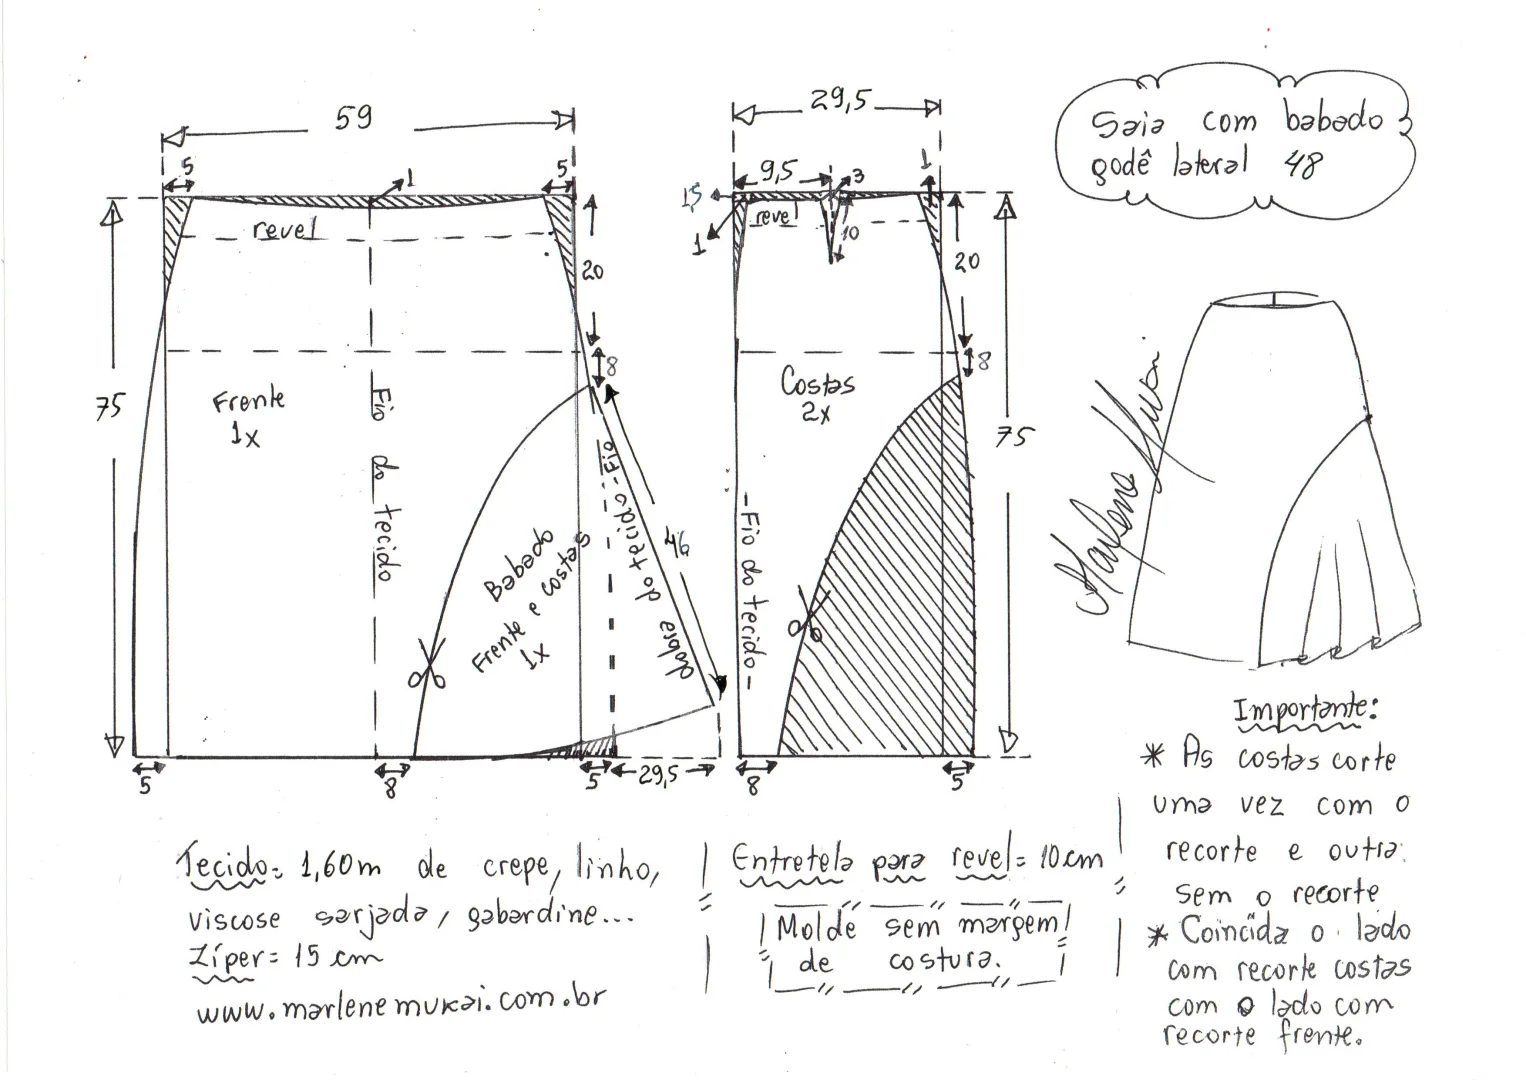 59
29,5
Saia com babado
godê lateral 48
5
1
5
9,5
3
1
1,5
revel
revel
10
1
20
20
8
8
75
Frente
1x
Fio do tecido
Costas
2x
75
Fio do tecido
Babado
Frente e costas
1x
Fio do tecido
dobra
46
-Fio do tecido-
Marlene Mukai
5
8
5
29,5
8
5
Importante:
* As costas corte
uma vez com o
recorte e outra
sem o recorte
* Coincida o lado
com recorte costas
com o lado com
recorte frente.
Tecido= 1,60m de crepe, linho,
viscose sarjada, gabardine...
Zíper= 15 cm
www.marlenemukai.com.br
Entretela para revel= 10cm
Molde sem margem
de costura.